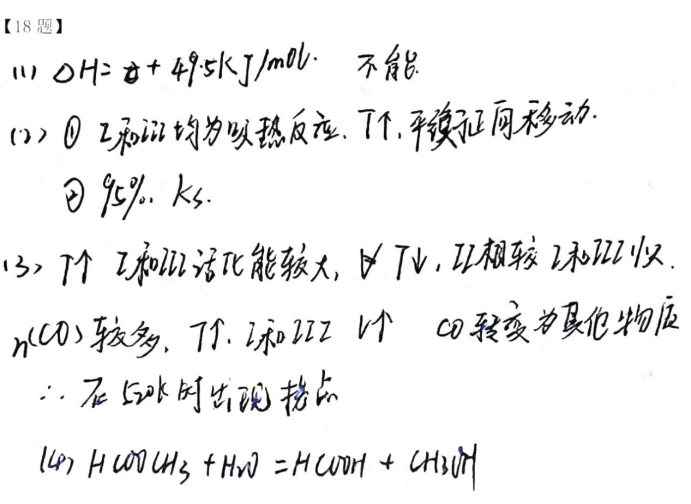 【18题】
(1) △H= + 49.5KJ/mol. 不能.
(2) ① I和III均为吸热反应. T↑. 平衡正向移动.
② 95%. K3.
(3) T↑ I和III活化能较大, T↓, II相较I和III
n(CO)较多. T↑. I和III V↑ CO转变为其他物质
∴ 在520K时出现拐点
(4) HCOOCH3 + H2O = HCOOH + CH3OH